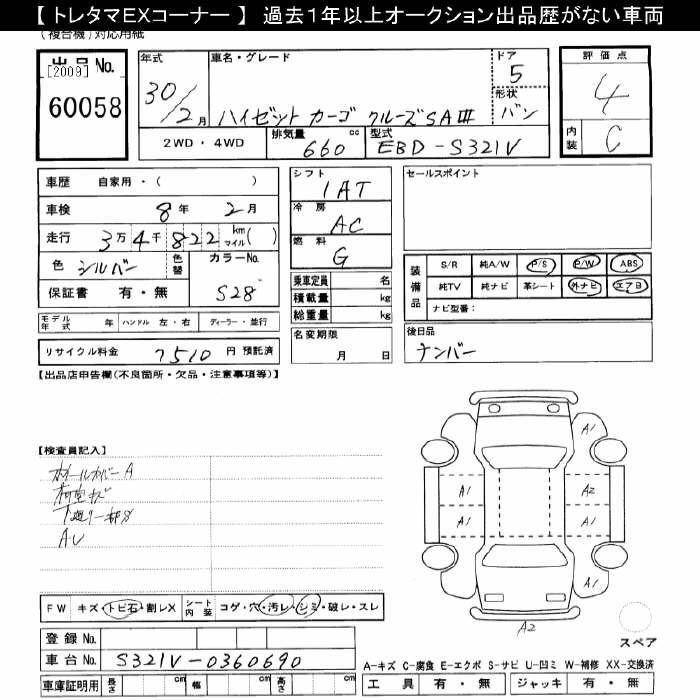 【 トレタマEXコーナー 】 過去1年以上オークション出品歴がない車両
(複合機)対応用紙
出品 No.
[2009]
60058
年式
30/2月
車名・グレード
ハイゼット カーゴ クルーズSAⅢ
ドア
5
形状
バン
評価点
4
内装
C
2WD・4WD
排気量
660 cc
型式
EBD-S321V
車歴 自家用・( )
車検 8年 2月
走行 3万4千822 km マイル( )
色 シルバー
色替
カラーNo.
S28
保証書 有・無
シフト
IAT
冷房
AC
燃料
G
乗車定員 名
積載量 kg
総重量 kg
セールスポイント
装備品
S/R 純A/W P/S P/W ABS
純TV 純ナビ 革シート 外ナビ エアB
ナビ型番:
モデル年式 年 ハンドル 左・右 ディーラー・並行
リサイクル料金 7510 円 預託済
名変期限
月 日
後日品
ナンバー
【出品店申告欄(不良箇所・欠品・注意事項等)】
【検査員記入】
ホイールカバーA
荷室キズ
下廻り一部S
AU
A1
A1
A2
A1
A1
A1
A2
FW キズ・トビ石・割レX
シート内装 コゲ・穴・汚レ・シミ・破レ・スレ
登録 No.
車台 No. S321V-0360690
車庫証明用 長さ cm 幅 cm 高さ cm
スペア
A-キズ C-腐食 E-エクボ S-サビ U-凹ミ W-補修 XX-交換済
工具 有・無 ジャッキ 有・無